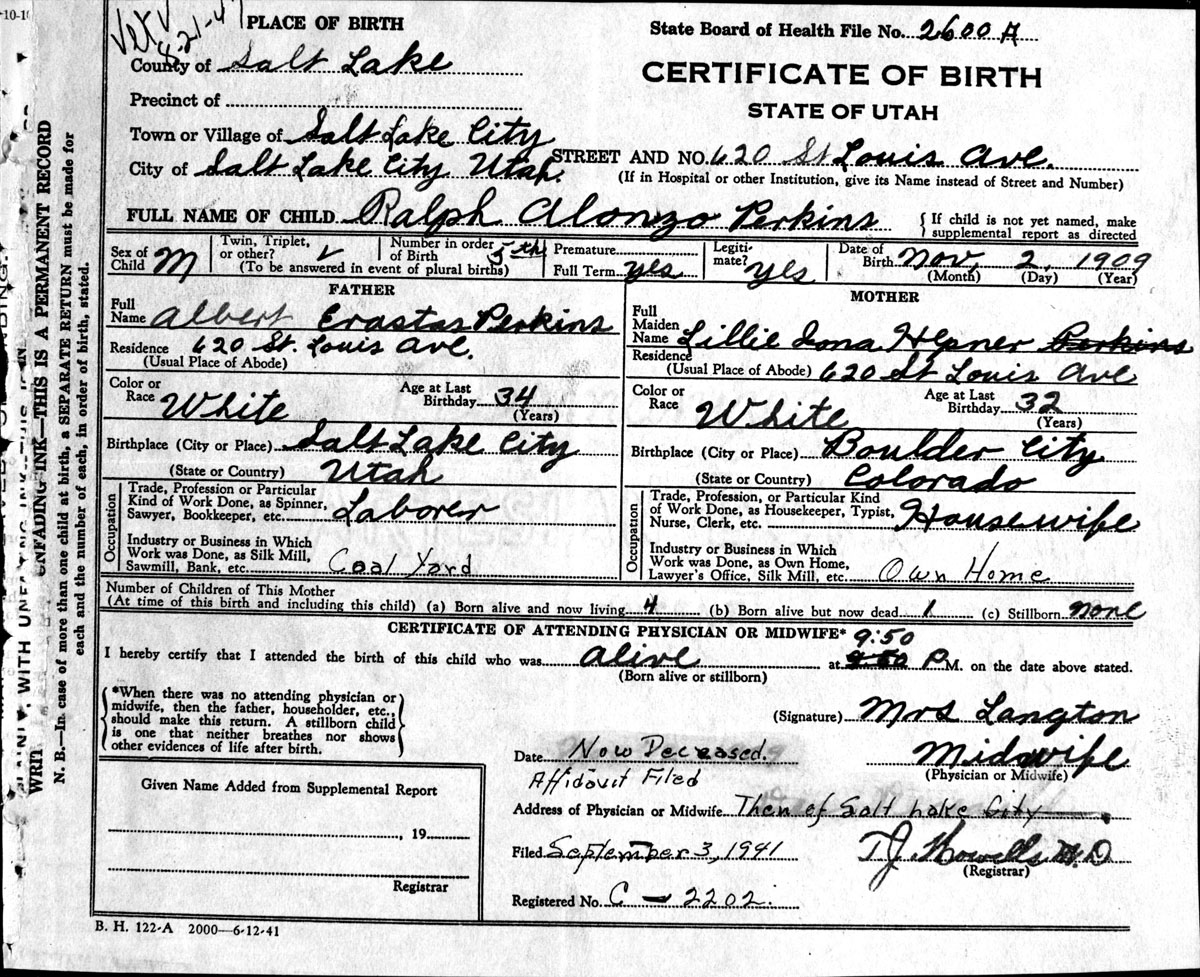 PLACE OF BIRTH
State Board of Health File No. 2600 A
County of Salt Lake
CERTIFICATE OF BIRTH
Precinct of
STATE OF UTAH
Town or Village of Salt Lake City
City of Salt Lake City Utah.
STREET AND NO. 620 St Louis Ave.
(If in Hospital or other Institution, give its Name instead of Street and Number)
FULL NAME OF CHILD Ralph Alonzo Perkins
{ If child is not yet named, make
supplemental report as directed
Sex of Child M
Twin, Triplet, or other?
Number in order of Birth 5th
(To be answered in event of plural births)
Premature
Full Term yes
Legitimate? yes
Date of Birth Nov, 2, 1909
(Month) (Day) (Year)
FATHER
Full Name Albert Erastas Perkins
Residence 620 St. Louis Ave.
(Usual Place of Abode)
Color or Race White
Age at Last Birthday 34
(Years)
Birthplace (City or Place) Salt Lake City
(State or Country) Utah
Occupation
Trade, Profession or Particular
Kind of Work Done, as Spinner,
Sawyer, Bookkeeper, etc. Laborer
Industry or Business in Which
Work was Done, as Silk Mill,
Sawmill, Bank, etc. Coal Yard
MOTHER
Full
Maiden
Name Lillie Iona Hepner Perkins
Residence
(Usual Place of Abode) 620 St Louis Ave
Color or Race White
Age at Last Birthday 32
(Years)
Birthplace (City or Place) Boulder City
(State or Country) Colorado
Occupation
Trade, Profession, or Particular Kind
of Work Done, as Housekeeper, Typist,
Nurse, Clerk, etc. Housewife
Industry or Business in Which
Work was Done, as Own Home,
Lawyer's Office, Silk Mill, etc. Own Home
Number of Children of This Mother
(At time of this birth and including this child) (a) Born alive and now living 4 (b) Born alive but now dead 1 (c) Stillborn none
CERTIFICATE OF ATTENDING PHYSICIAN OR MIDWIFE*
9:50
I hereby certify that I attended the birth of this child who was alive at P M. on the date above stated.
(Born alive or stillborn)
*When there was no attending physician or
midwife, then the father, householder, etc.,
should make this return. A stillborn child
is one that neither breathes nor shows
other evidences of life after birth.
(Signature) Mrs Langton
Midwife
(Physician or Midwife)
Date Now Deceased.
Affidavit Filed
Address of Physician or Midwife Then of Salt Lake City
Given Name Added from Supplemental Report
, 19
Registrar
Filed September 3, 1941
T.J. Howells M.D
(Registrar)
Registered No. C - 2202.
B. H. 122-A 2000—6-12-41
UNFADING INK—THIS IS A PERMANENT RECORD
N. B.—In case of more than one child at birth, a SEPARATE RETURN must be made for
each and the number of each, in order of birth, stated.